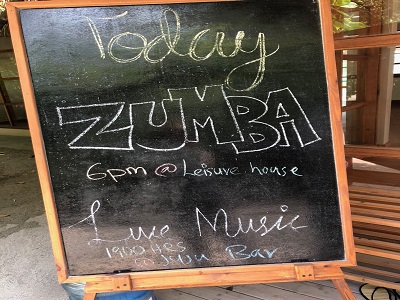 Today
ZUMBA
6pm @ Leisure house
Live Music
1900HRS
Bar